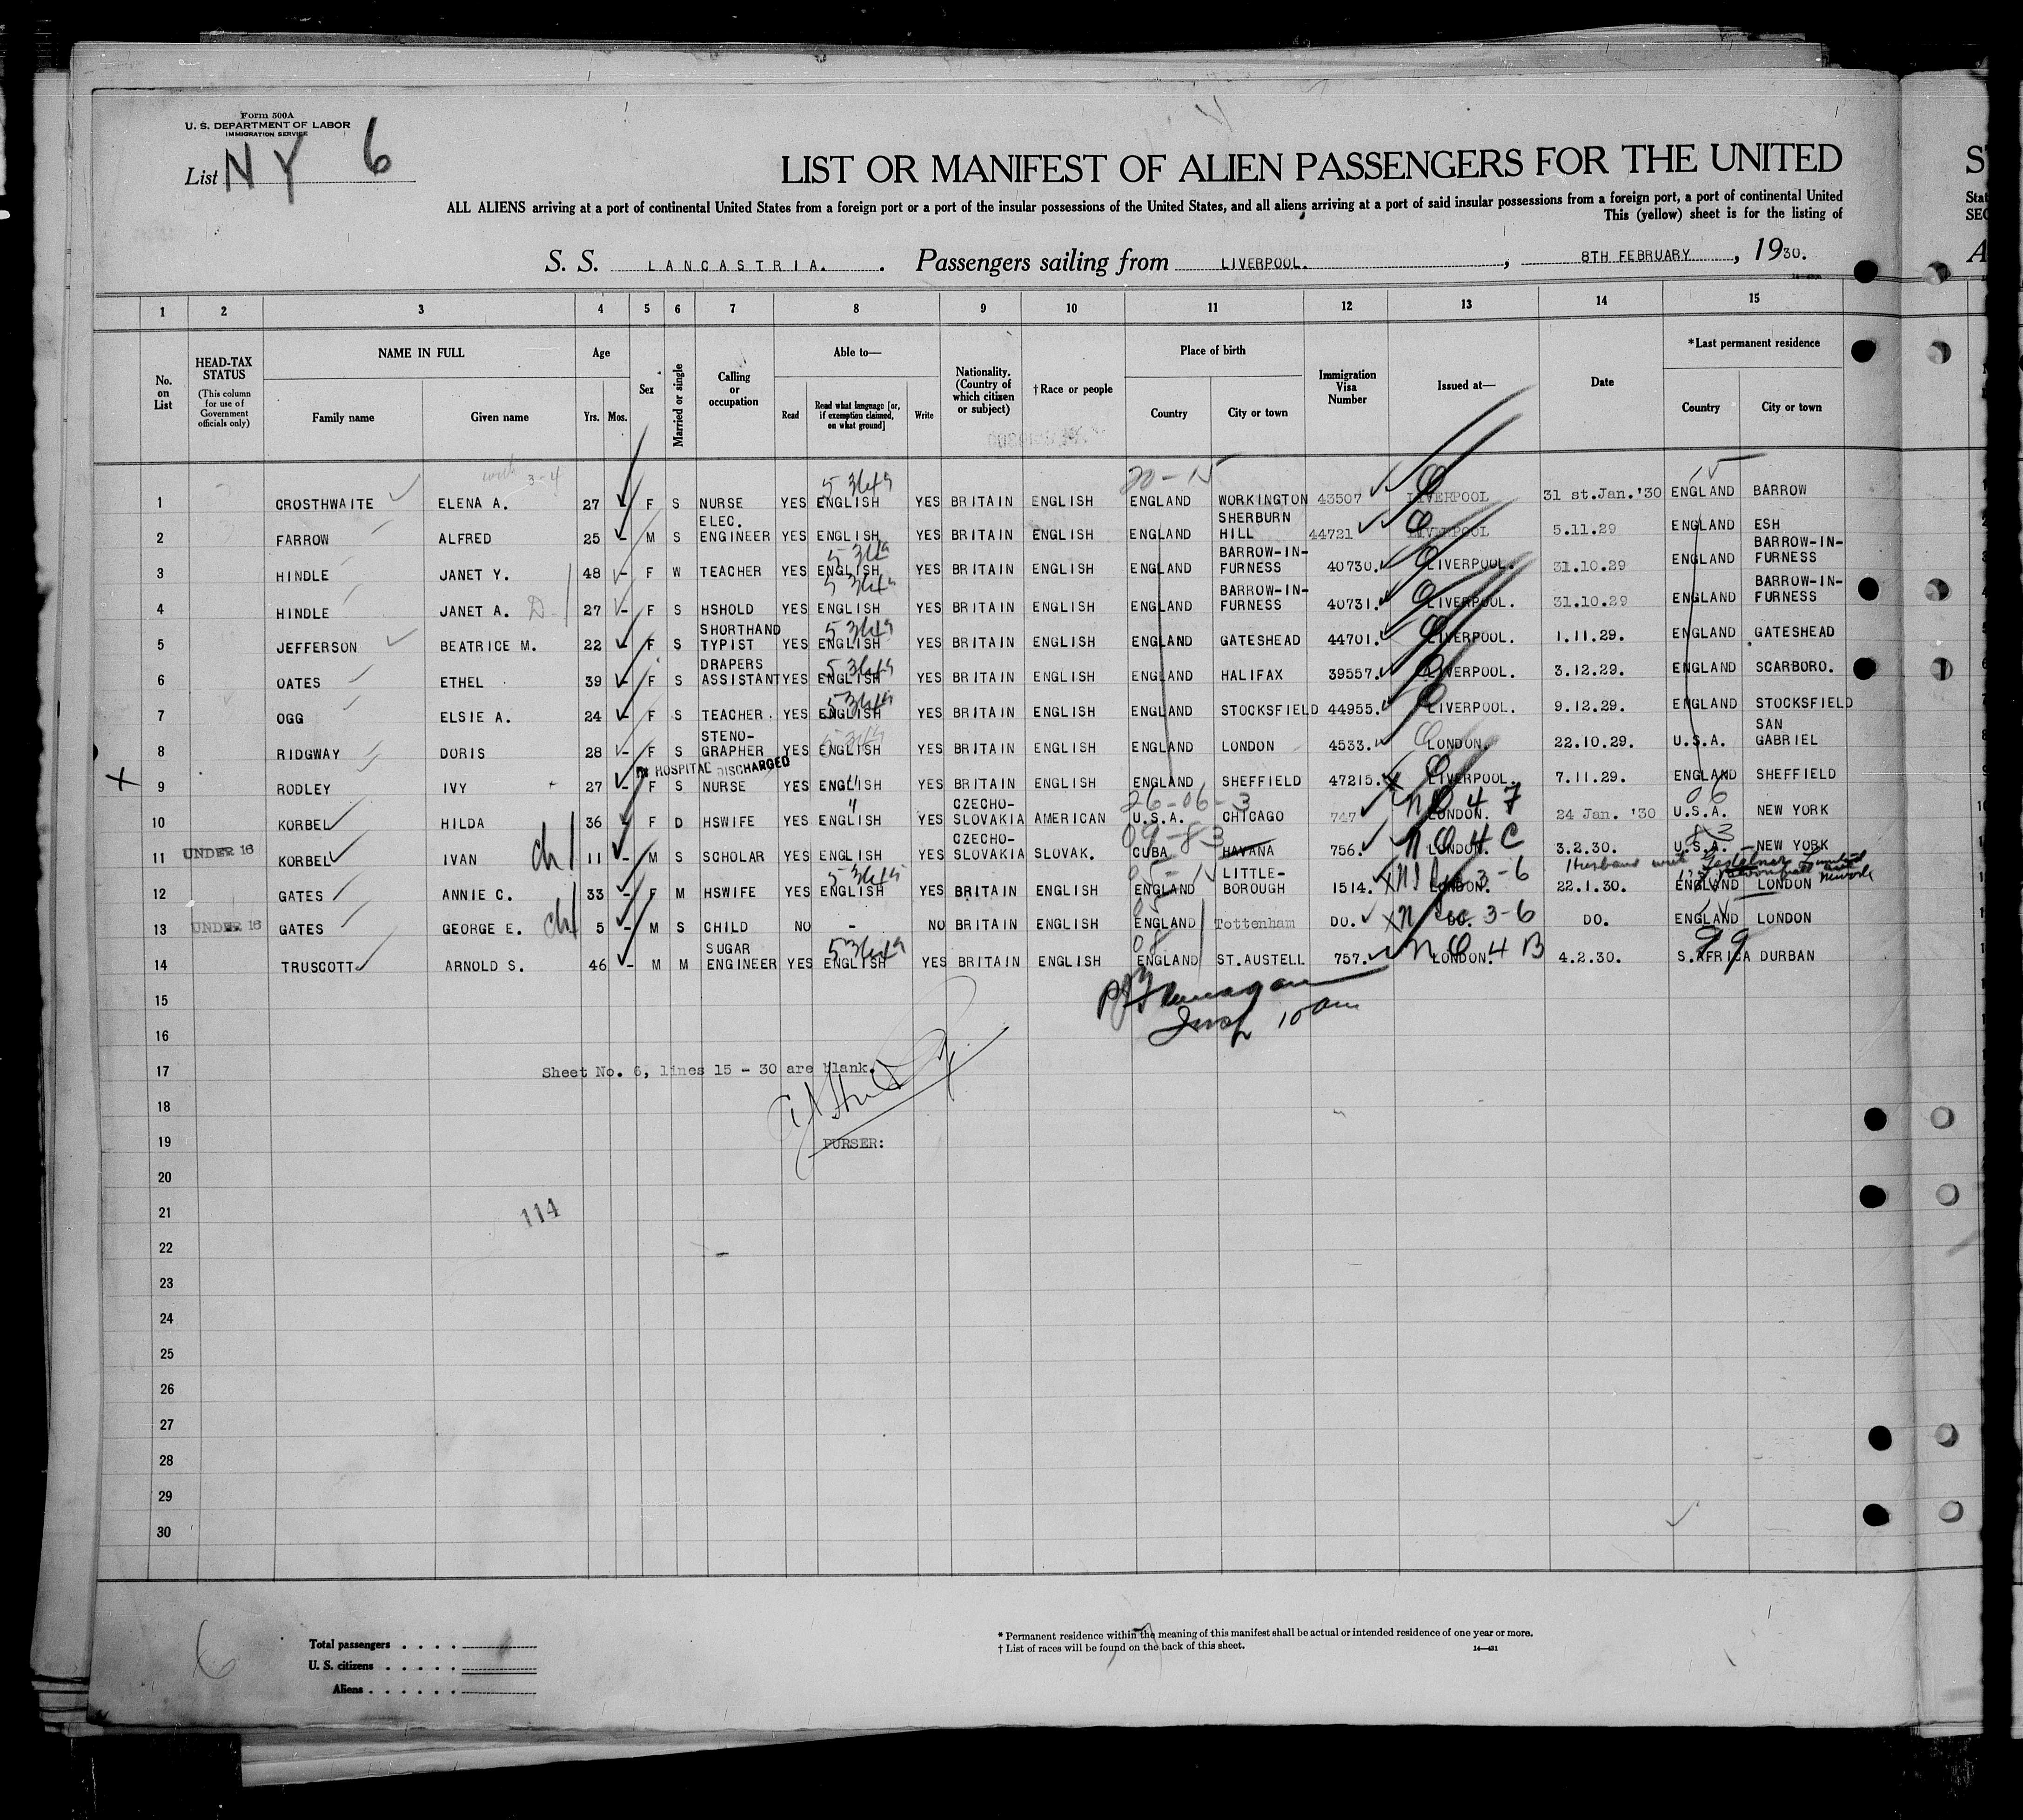 Form 500A
U. S. DEPARTMENT OF LABOR
IMMIGRATION SERVICE
List NY 6
LIST OR MANIFEST OF ALIEN PASSENGERS FOR THE UNITED
ALL ALIENS arriving at a port of continental United States from a foreign port or a port of the insular possessions of the United States, and all aliens arriving at a port of said insular possessions from a foreign port, a port of continental United
This (yellow) sheet is for the listing of
S. S. LANCASTRIA. Passengers sailing from LIVERPOOL. , 8TH FEBRUARY , 1930.
1 2 3 4 5 6 7 8 9 10 11 12 13 14 15
No. on List
HEAD-TAX STATUS (This column for use of Government officials only)
NAME IN FULL
Family name Given name
Age
Yrs. Mos.
Sex
Married or single
Calling or occupation
Able to—
Read Read what language [or, if exemption claimed, on what ground] Write
Nationality. (Country of which citizen or subject)
†Race or people
Place of birth
Country City or town
Immigration Visa Number
Issued at—
Date
*Last permanent residence
Country City or town
1 CROSTHWAITE ELENA A. 27 - F S NURSE YES ENGLISH YES BRITAIN ENGLISH ENGLAND WORKINGTON 43507 LIVERPOOL 31 st.Jan.'30 ENGLAND BARROW
2 FARROW ALFRED 25 - M S ELEC. ENGINEER YES ENGLISH YES BRITAIN ENGLISH ENGLAND SHERBURN HILL 44721 LIVERPOOL 5.11.29 ENGLAND ESH
3 HINDLE JANET Y. 48 - F W TEACHER YES ENGLISH YES BRITAIN ENGLISH ENGLAND BARROW-IN-FURNESS 40730. LIVERPOOL. 31.10.29 ENGLAND BARROW-IN-FURNESS
4 HINDLE JANET A. 27 - F S HSHOLD YES ENGLISH YES BRITAIN ENGLISH ENGLAND BARROW-IN-FURNESS 40731. LIVERPOOL. 31.10.29 ENGLAND BARROW-IN-FURNESS
5 JEFFERSON BEATRICE M. 22 - F S SHORTHAND TYPIST YES ENGLISH YES BRITAIN ENGLISH ENGLAND GATESHEAD 44701. LIVERPOOL. 1.11.29. ENGLAND GATESHEAD
6 OATES ETHEL 39 - F S DRAPERS ASSISTANT YES ENGLISH YES BRITAIN ENGLISH ENGLAND HALIFAX 39557. LIVERPOOL. 3.12.29. ENGLAND SCARBORO.
7 OGG ELSIE A. 24 - F S TEACHER. YES ENGLISH YES BRITAIN ENGLISH ENGLAND STOCKSFIELD 44955. LIVERPOOL. 9.12.29. ENGLAND STOCKSFIELD
8 RIDGWAY DORIS 28 - F S STENO-GRAPHER YES ENGLISH YES BRITAIN ENGLISH ENGLAND LONDON 4533. LONDON. 22.10.29. U.S.A. SAN GABRIEL
IN HOSPITAL DISCHARGED
9 RODLEY IVY 27 - F S NURSE YES ENGLISH YES BRITAIN ENGLISH ENGLAND SHEFFIELD 47215. LIVERPOOL. 7.11.29. ENGLAND SHEFFIELD
10 KORBEL HILDA 36 - F D HSWIFE YES ENGLISH YES CZECHO-SLOVAKIA AMERICAN U.S.A. CHICAGO 747 LONDON. 24 Jan. '30 U.S.A. NEW YORK
11 UNDER 16 KORBEL IVAN ch 11 - M S SCHOLAR YES ENGLISH YES CZECHO-SLOVAKIA SLOVAK. CUBA HAVANA 756. LONDON. 3.2.30. U.S.A. NEW YORK
12 GATES ANNIE C. 33 - F M HSWIFE YES ENGLISH YES BRITAIN ENGLISH ENGLAND LITTLE-BOROUGH 1514. LONDON. 22.1.30. ENGLAND LONDON
13 UNDER 16 GATES GEORGE E. ch 5 - M S CHILD NO - NO BRITAIN ENGLISH ENGLAND Tottenham DO. DO. DO. ENGLAND LONDON
14 TRUSCOTT ARNOLD S. 46 - M M SUGAR ENGINEER YES ENGLISH YES BRITAIN ENGLISH ENGLAND ST.AUSTELL 757. LONDON. 4.2.30. S.AFRICA DURBAN
15
16
17 Sheet No. 6, lines 15 - 30 are blank.
18
19 PURSER:
20
21 114
22
23
24
25
26
27
28
29
30
6
Total passengers
U. S. citizens
Aliens
* Permanent residence within the meaning of this manifest shall be actual or intended residence of one year or more.
† List of races will be found on the back of this sheet.
14—431